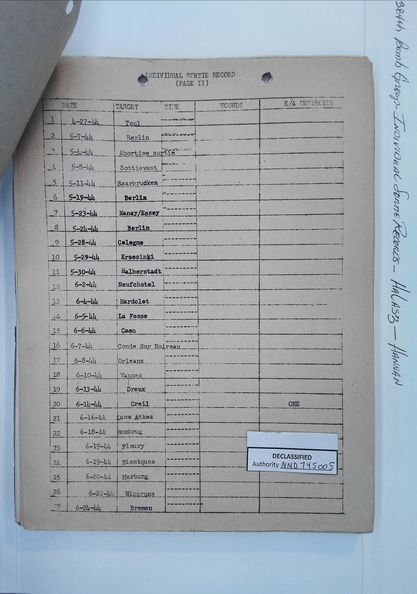 INDIVIDUAL SORTIE RECORD
(PAGE II)
DATE TARGET TIME ROUNDS E/A DESTROYED
1 4-27-44 Toul
2 5-7-44 Berlin
3 5-4-44 Abortive sortie
4 5-8-44 Sottievast
5 5-11-44 Saarbrudken
6 5-19-44 Berlin
7 5-23-44 Nancy/Essey
8 5-24-44 Berlin
9 5-28-44 Cologne
10 5-29-44 Krzesinki
11 5-30-44 Halberstadt
12 6-2-44 Neufchatel
13 6-4-44 Hardelot
14 6-5-44 La Fosse
15 6-6-44 Caen
16 6-7-44 Conde Sur Noireau
17 6-8-44 Orleans
18 6-10-44 Vannes
19 6-13-44 Dreux
20 6-14-44 Creil ONE
21 6-16-44 Laon Athes
22 6-18-44 Hamburg
23 6-19-44 Fleury
24 6-19-44
25 6-20-44 Harburg
26 6-22-44
27 6-24-44 Bremen
DECLASSIFIED
Authority NND 745005
384th Bomb Group - Individual Sortie Records - HALASZ - HANNAN